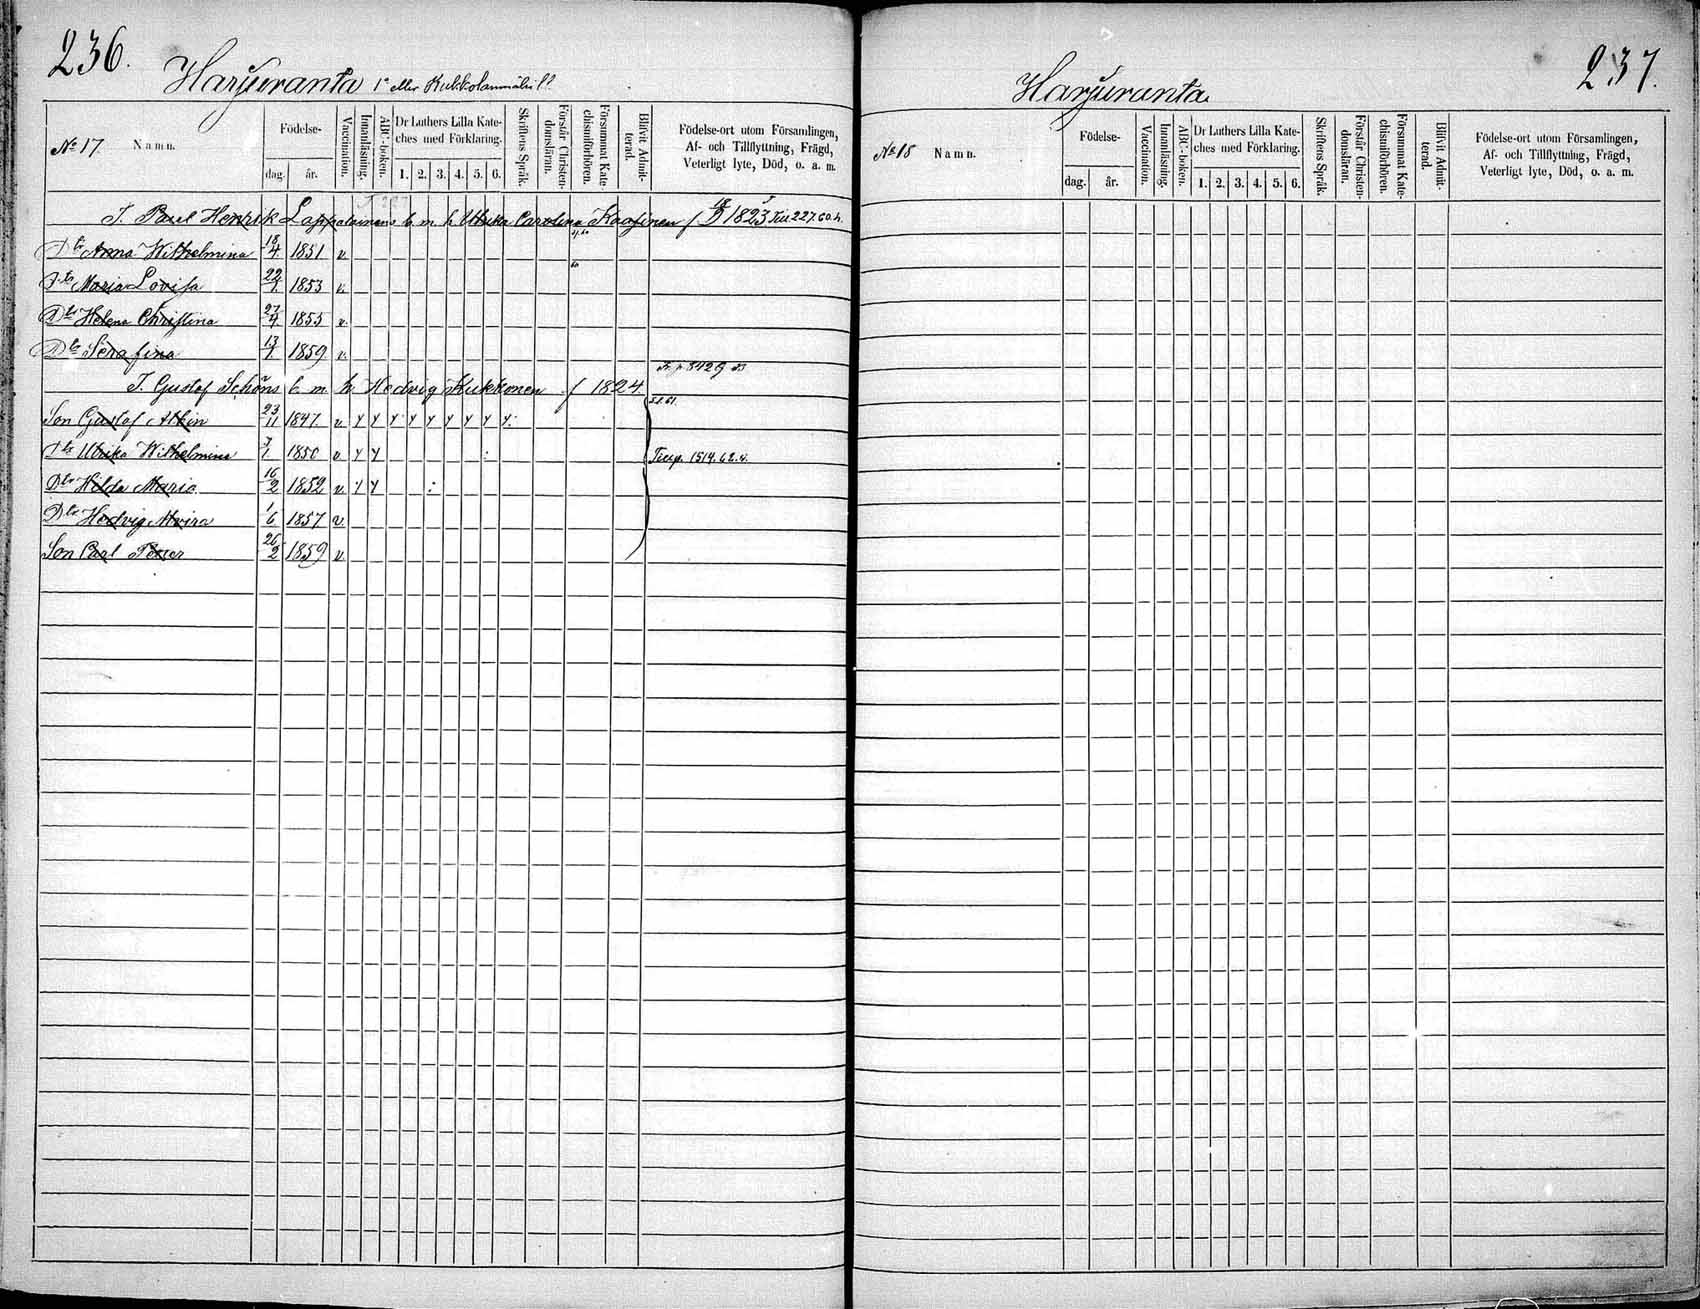 236.
Harjuranta 1a eller Kukkolanmäki
№ 17 Namn.
Födelse-
dag. år.
Vaccination.
Innanläsning.
ABC-boken.
Dr Luthers Lilla Kate-
ches med Förklaring.
1. 2. 3. 4. 5. 6.
Skriftens Språk.
Förstår Christen-
domsläran.
Försummat Kate-
chismiförhören.
Blifvit Admit-
terad.
Födelse-ort utom Församlingen,
Af- och Tillflyttning, Frägd,
Veterligt lyte, Död, o. a. m.
T. Paul Henrik Lappalainens b. m. h. Ulrika Carolina Kaasinen f 1823 227. 60.
Dtr Anna Wilhelmina 18/4 1851 v.
Dtr Maria Lovisa 1853 v.
Dtr Helena Christina 27/4 1855 v.
Dtr Serafina 13/7 1859 v.
T. Gustof Schöns b. m. h. Hedvig Kukkonen f 1824.
Son Gustof Albin 23/11 1847. v
Dtr Ulrika Wilhelmina 1850 v
Dtr Hilda Maria 16/2 1852 v
Dtr Hedvig 1/6 1857 v
Son Carl 26/2 1859 v
237.
Harjuranta
№ 18 Namn.
Födelse-
dag. år.
Vaccination.
Innanläsning.
ABC-boken.
Dr Luthers Lilla Kate-
ches med Förklaring.
1. 2. 3. 4. 5. 6.
Skriftens Språk.
Förstår Christen-
domsläran.
Försummat Kate-
chismiförhören.
Blifvit Admit-
terad.
Födelse-ort utom Församlingen,
Af- och Tillflyttning, Frägd,
Veterligt lyte, Död, o. a. m.